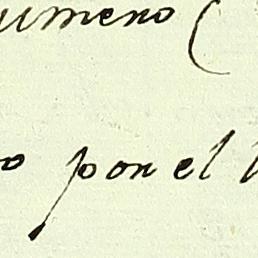 umeno (
o por el